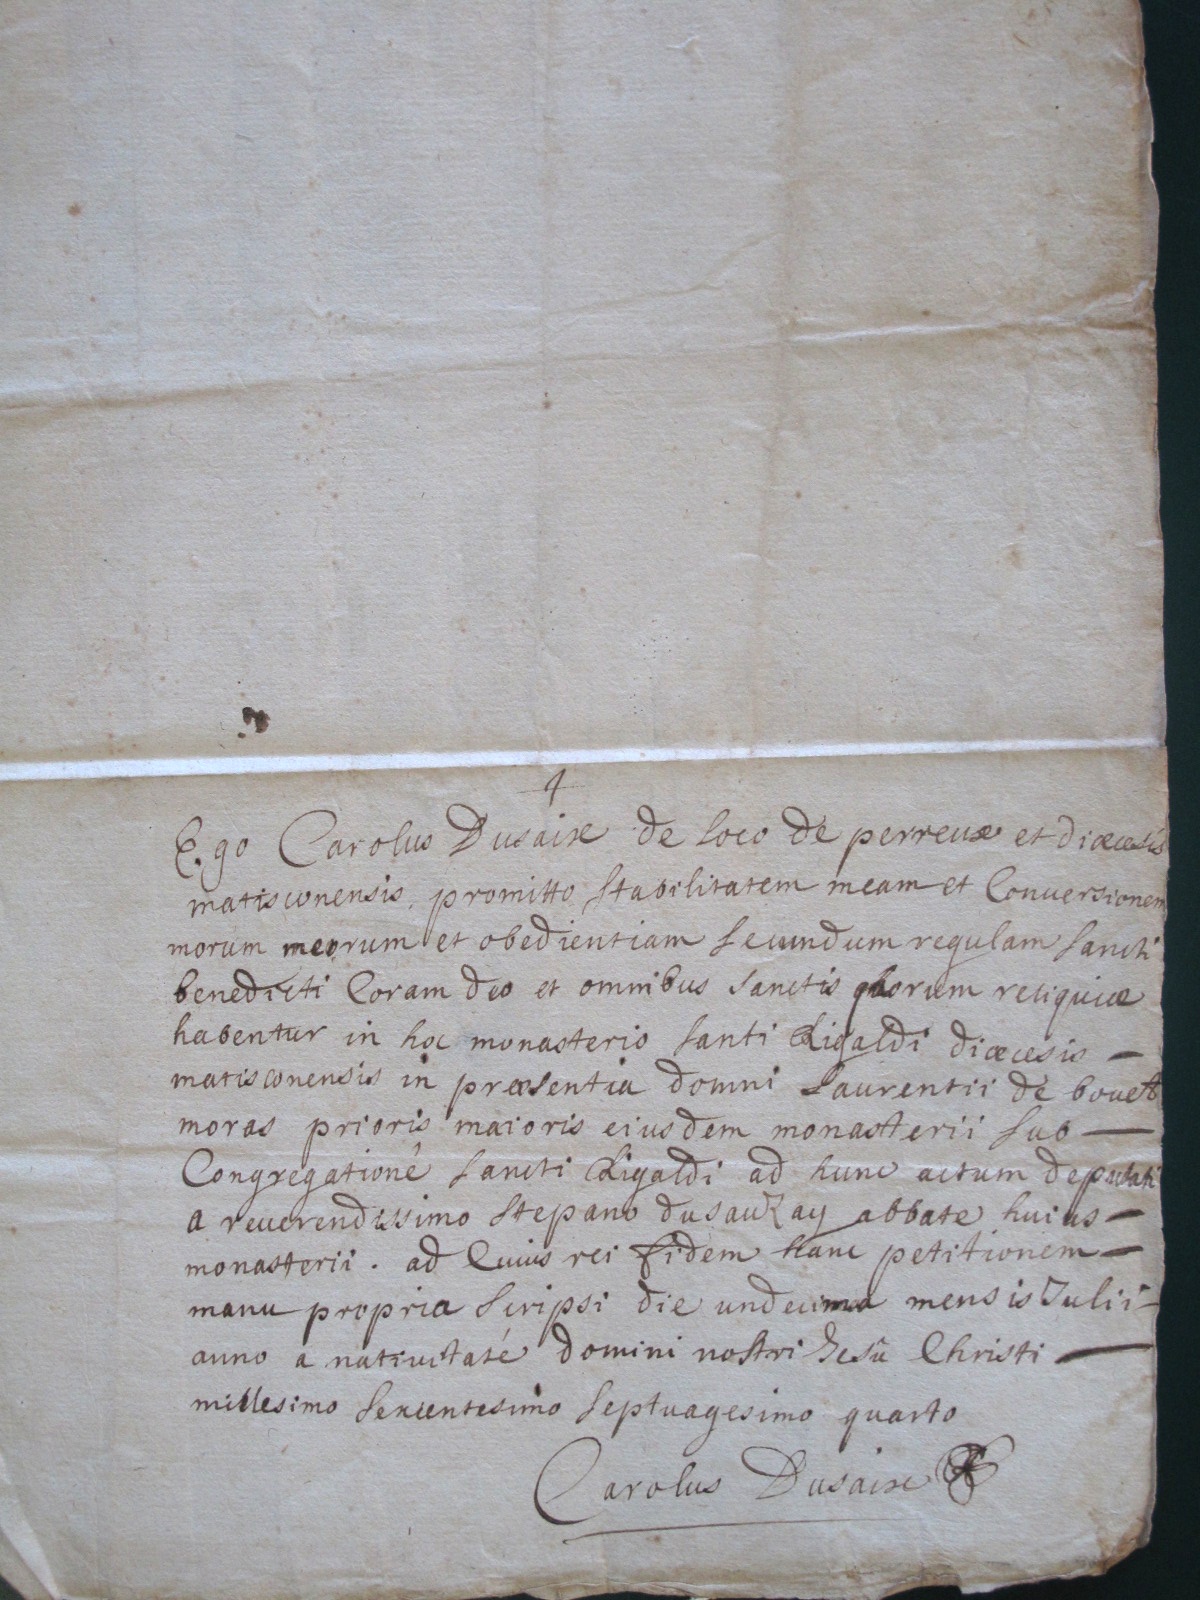 Ego Carolus Dusaix de loco de perreux et diœcesis
matisconensis, promitto stabilitatem meam et Conversionem
morum meorum et obedientiam secundum regulam sancti
benedicti Coram deo et omnibus sanctis quorum reliquiæ
habentur in hoc monasterio santi Rigaldi diœcesis —
matisconensis in præsentia domni Laurentii de
moras prioris maioris eiusdem monasterii sub —
Congregationé sancti Rigaldi ad hunc actum deputati
a reverendissimo stepano dusauzay abbate huius —
monasterii . ad Cuius rei fidem hanc petitionem —
manu propria scripsi die undecima mensis Julii —
anno a nativitaté domini nostri Jesu Christi —
millesimo sexcentesimo septuagesimo quarto
Carolus Dusaix